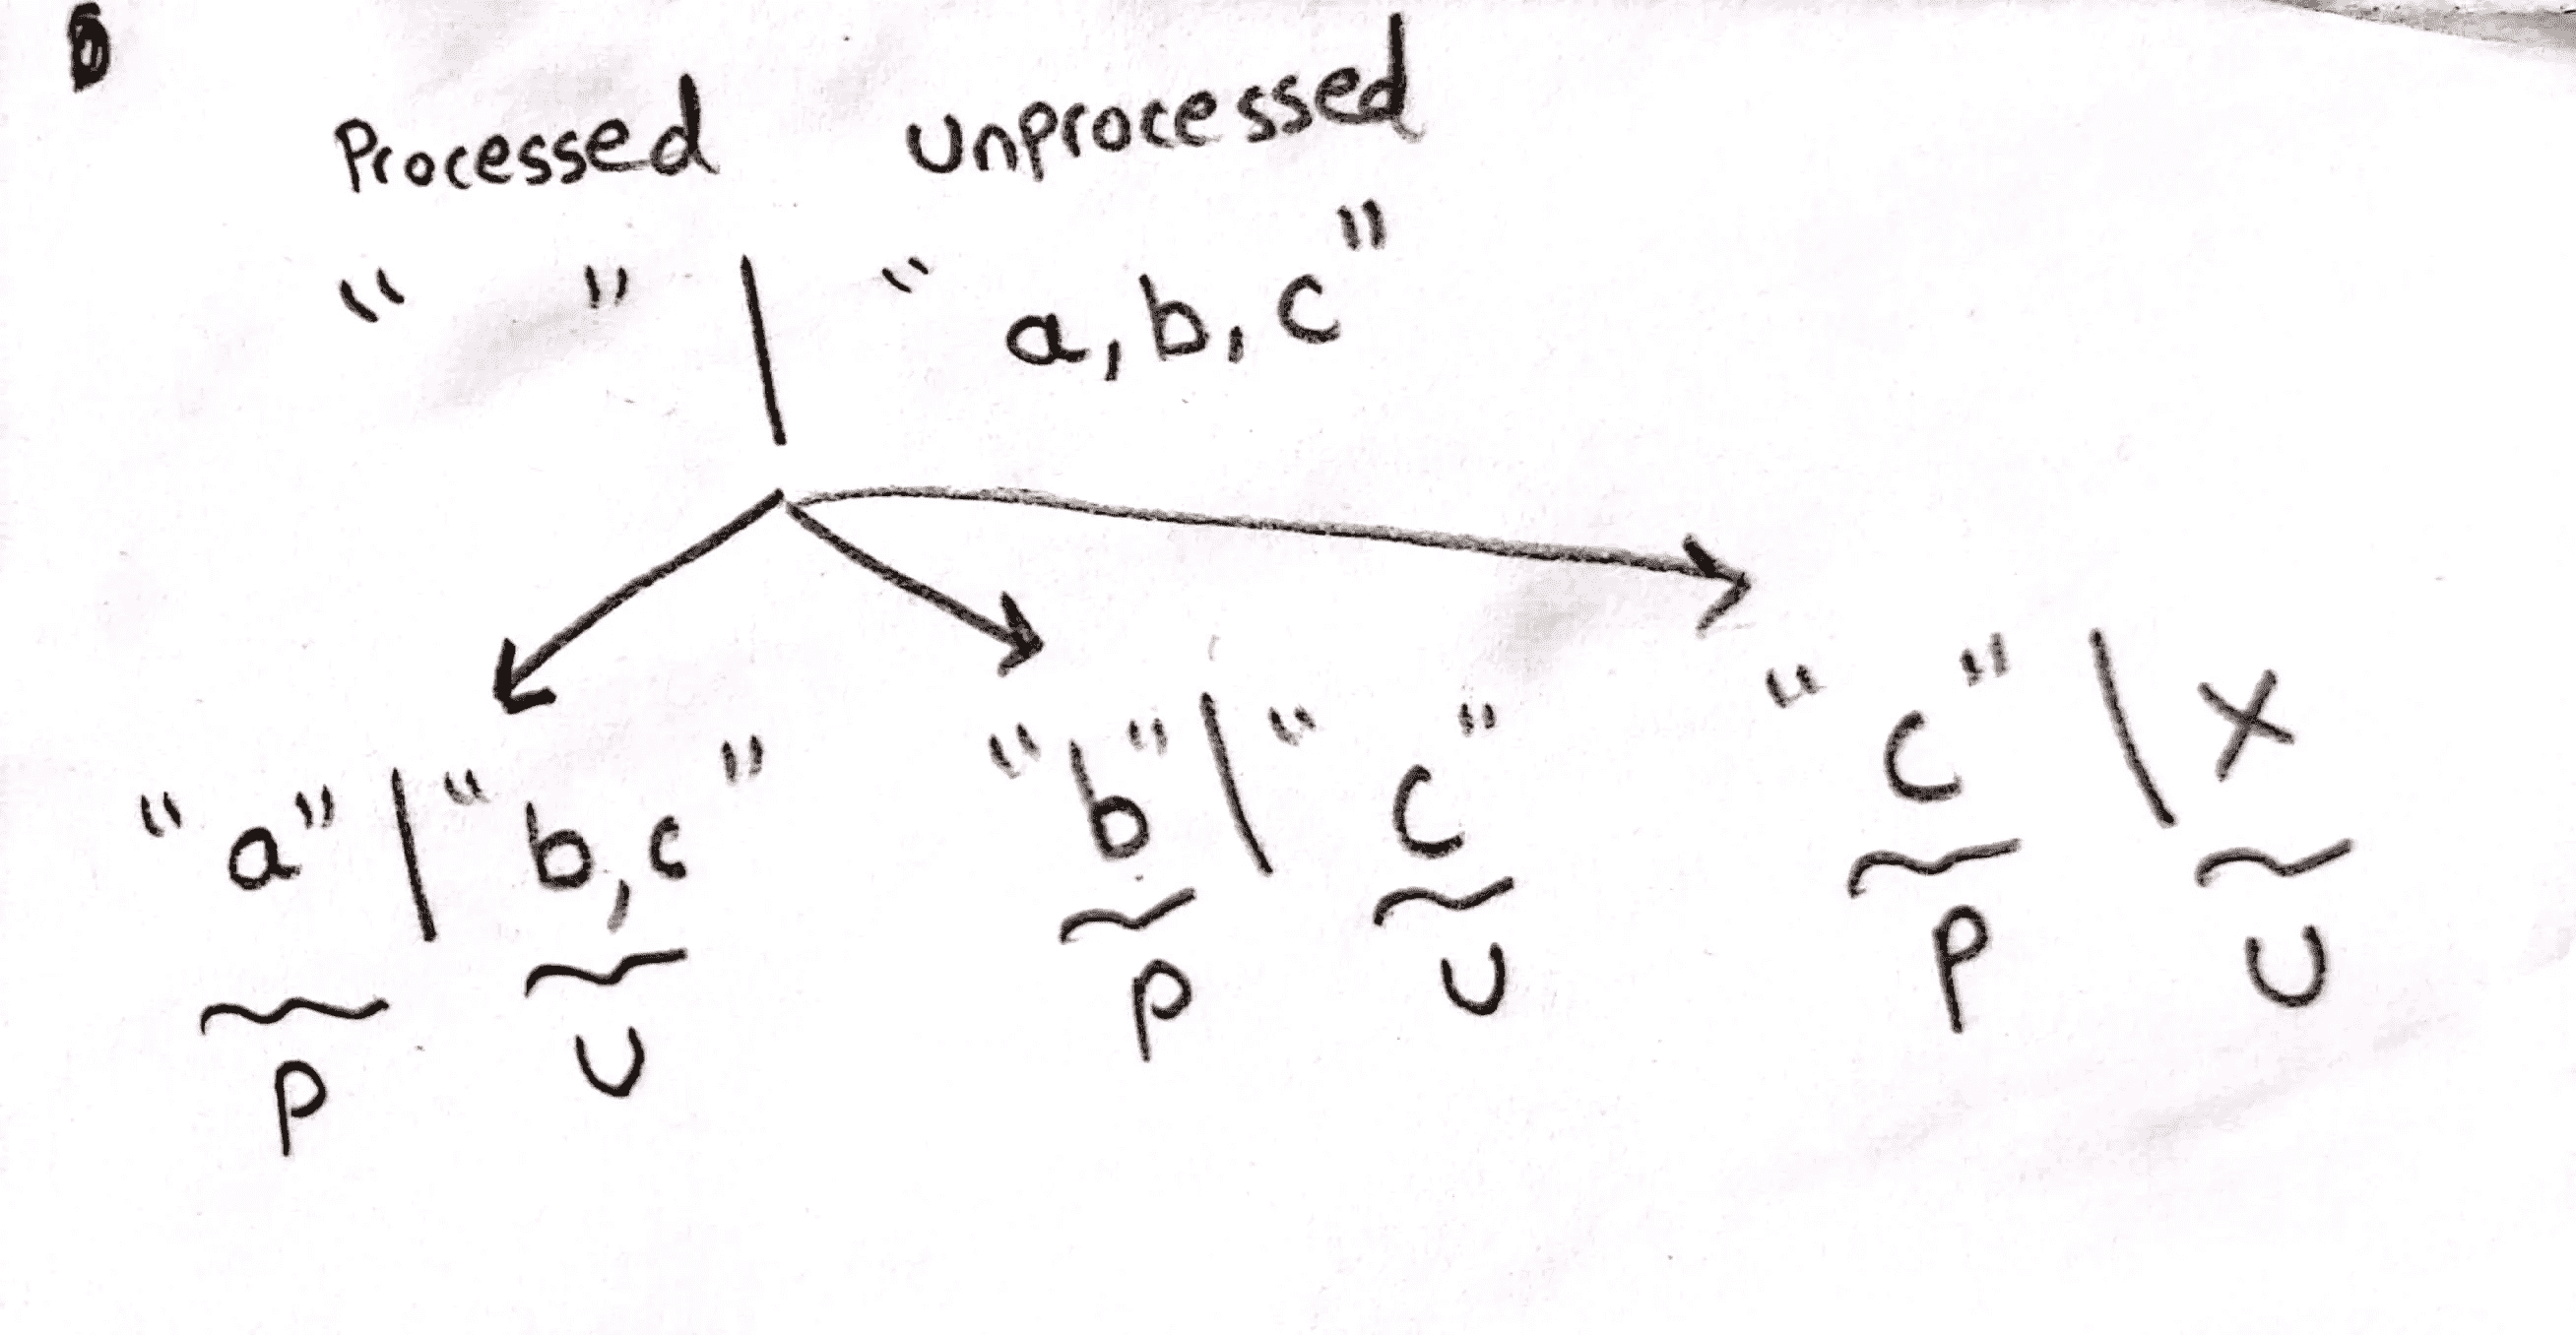 Processed Unprocessed
" " | " a, b, c "
" a " | " b, c "
" b " | " c "
" c " | x
P U
P U
P U